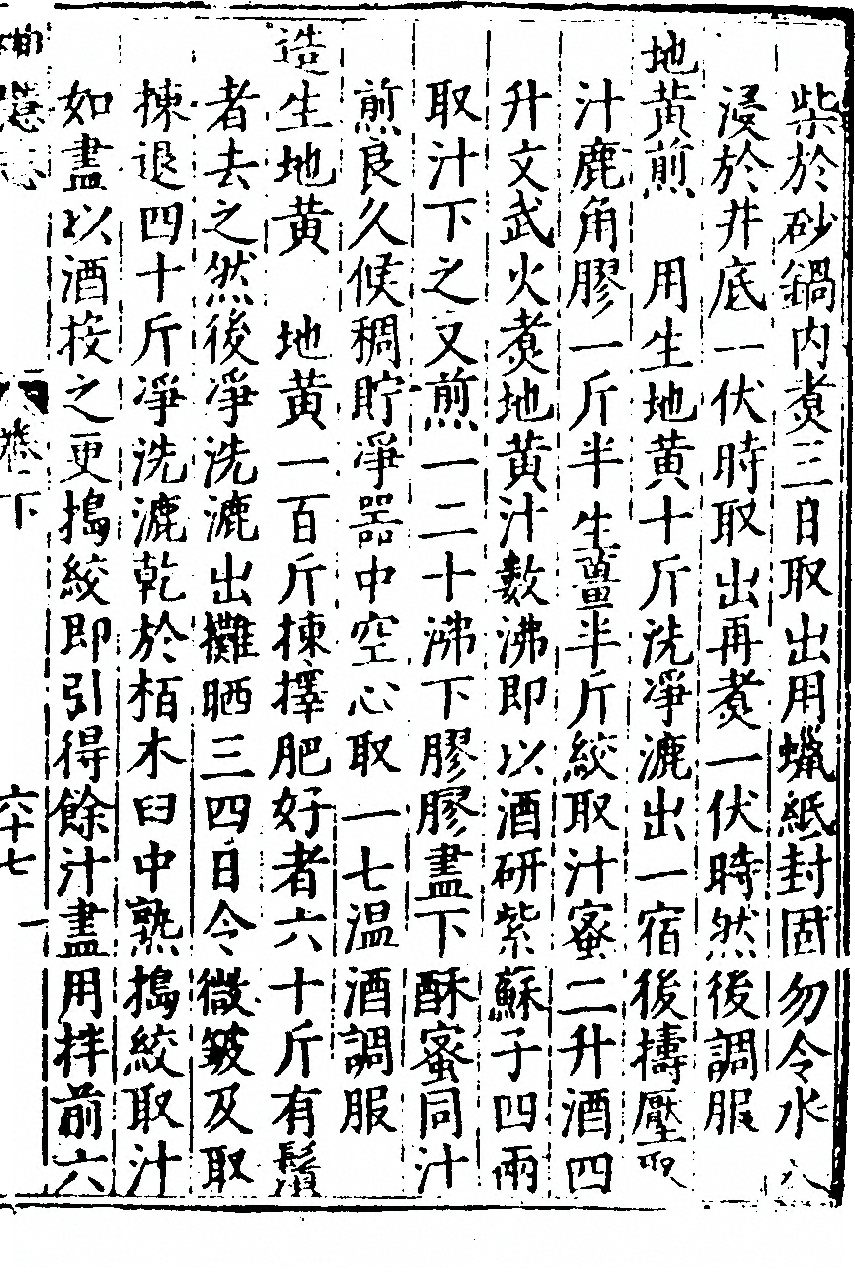 柴於砂鍋内煮三日取出用蠟紙封固勿令水入
浸於井底一伏時取出再煮一伏時然後調服
地黄煎　用生地黄十斤洗凈漉出一宿後擣壓取
汁鹿角膠一斤半生薑半斤絞取汁蜜二升酒四
升文武火煮地黄汁數沸即以酒研紫蘇子四兩
取汁下之又煎一二十沸下膠膠盡下酥蜜同汁
煎良久候稠貯凈器中空心取一七温酒調服
造生地黄　地黄一百斤揀擇肥好者六十斤有鬚
者去之然後凈洗漉出攤晒三四日令微皺及取
揀退四十斤凈洗漉乾於栢木臼中熟搗絞取汁
如盡以酒挼之更搗絞即引得餘汁盡用拌前六
神隱志
卷下
六十七